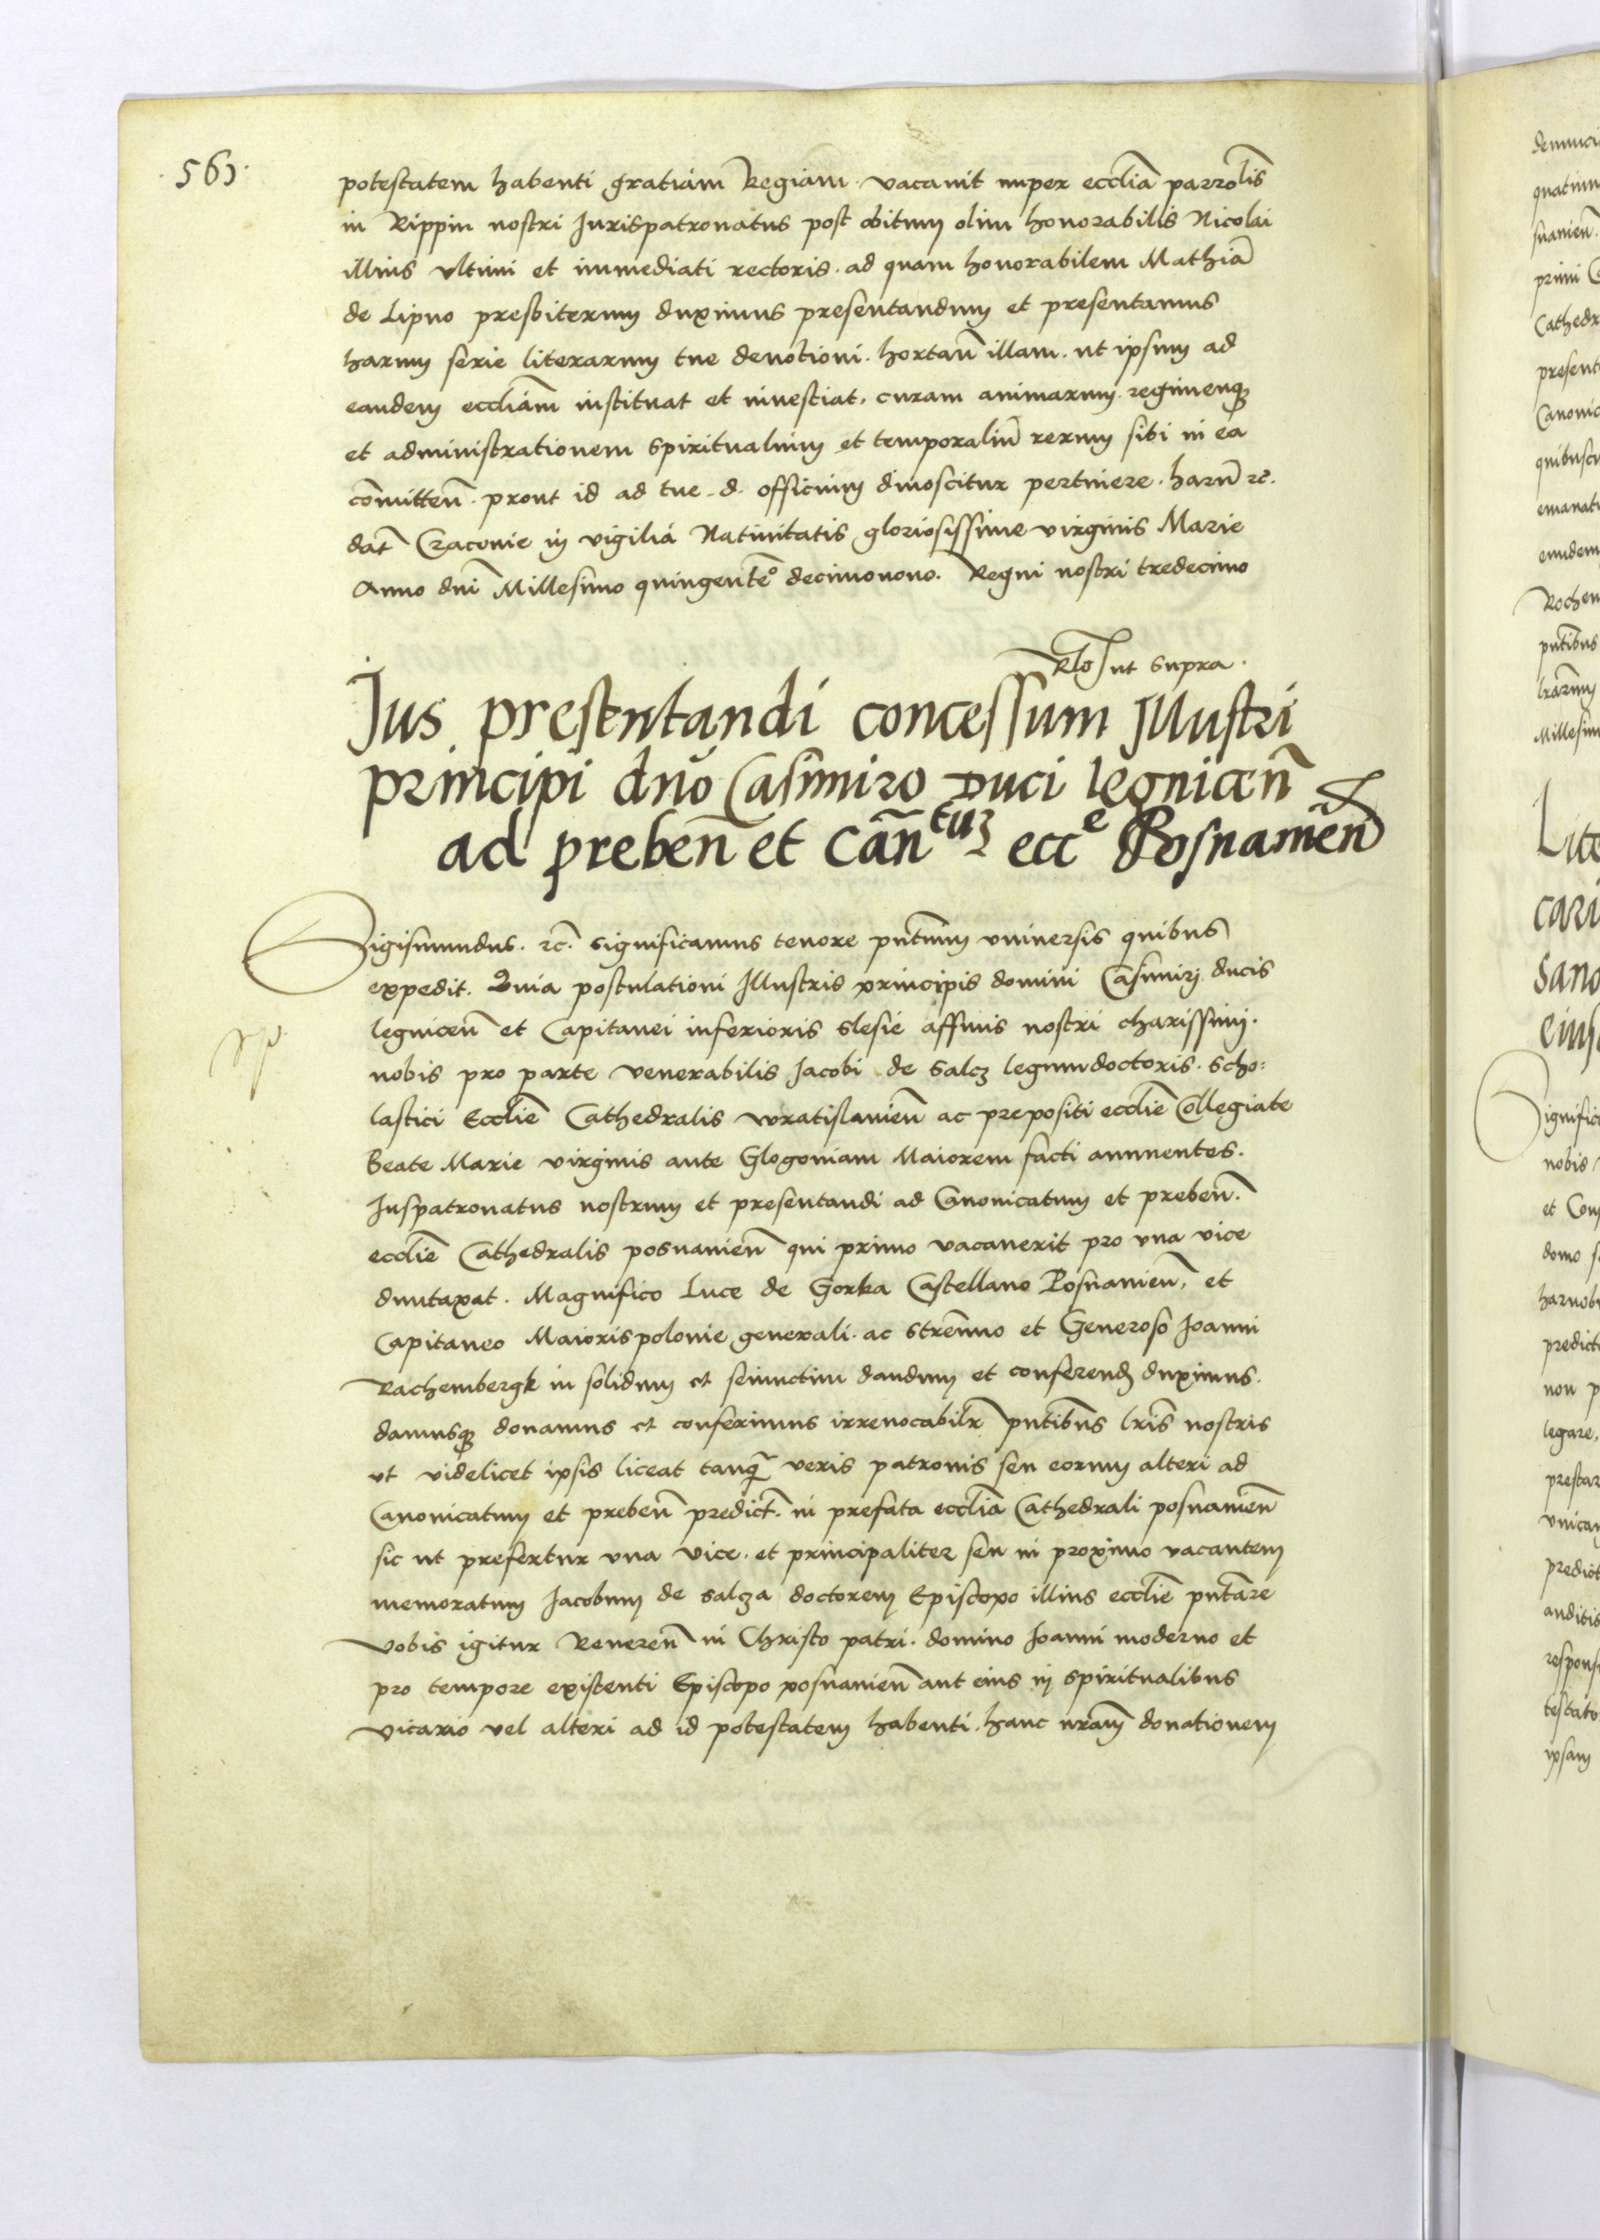 561.
potestatem habenti gratiam Regiam. vacavit nuper ecclīa parrolīs
in Rippin nostri Jurispatronatus post obitum olim honorabilis Nicolai
illius ultimi et immediati rectoris. ad quam honorabilem Mathiā
de Lipno presbiterum duximus presentandum et presentamus
harum serie literarum tue devotioni. hortañ illam. ut ipsum ad
eandem eccliām instituat et investiat, curam animarum regimenq
et administrationem spiritualium et temporaliū rerum sibi in ea
cōmitteñ. prout id ad tue. d. officium dinoscitur pertinere. harū rc̄.
dat̄ Cracovie in vigilia Nativitatis gloriosissime virginis Marie
Anno dnī Millesimo quingentēo decimonono. Regni nostri tredecimo
Rlo ut supra.
Jus presentandi concessum Jllustri
principi dnō Casimiro Duci legniceñ
ad prebeñ et Cañtuʒ ecce Posnanieñ
Sigismundus. rc̄. significamus tenore pn̄tium universis quibus
expedit. Quia postulationi Illustris principis domini Casimiri ducis
legniceñ et Capitanei inferioris slesie affinis nostri charissimi.
nobis pro parte venerabilis Jacobi de Salcz legumdoctoris. Scho:
lastici Ecclīe Cathedralis wratislavieñ ac prepositi ecclīe Collegiate
Beate Marie virginis ante Glogoviam Maiorem facti annuentes.
Juspatronatus nostrum et presentandi ad Canonicatum et prebeñ.
ecclīe Cathedralis posnanieñ qui primo vacaverit pro una vice
duntaxat. Magnifico Luce de Gorka Castellano Posnanieñ, et
Capitaneo Maiorispolonie generali. ac strenuo et Generoso Joanni
Rachembergk in solidum et seiunctim dandum et conferend duximus.
damusq donamus et conferimus irrevocabilr̄ pn̄tibus lrīs nostris
ut videlicet ipsis liceat tanq̄ veris patronis seu eorum alteri ad
Canonicatum et prebeñ predict̄. in prefata ecclīa Cathedrali posnanieñ
sic ut prefertur una vice. et principaliter seu in proximo vacantem
memoratum Jacobum de Salcza doctorem Episcopo illius ecclīe pn̄tare
Vobis igitur Revereñ in Christo patri. domino Joanni moderno et
pro tempore existenti Episcopo posnanieñ aut eius in spiritualibus
vicario vel alteri ad id potestatem habenti. hanc nrām donationem